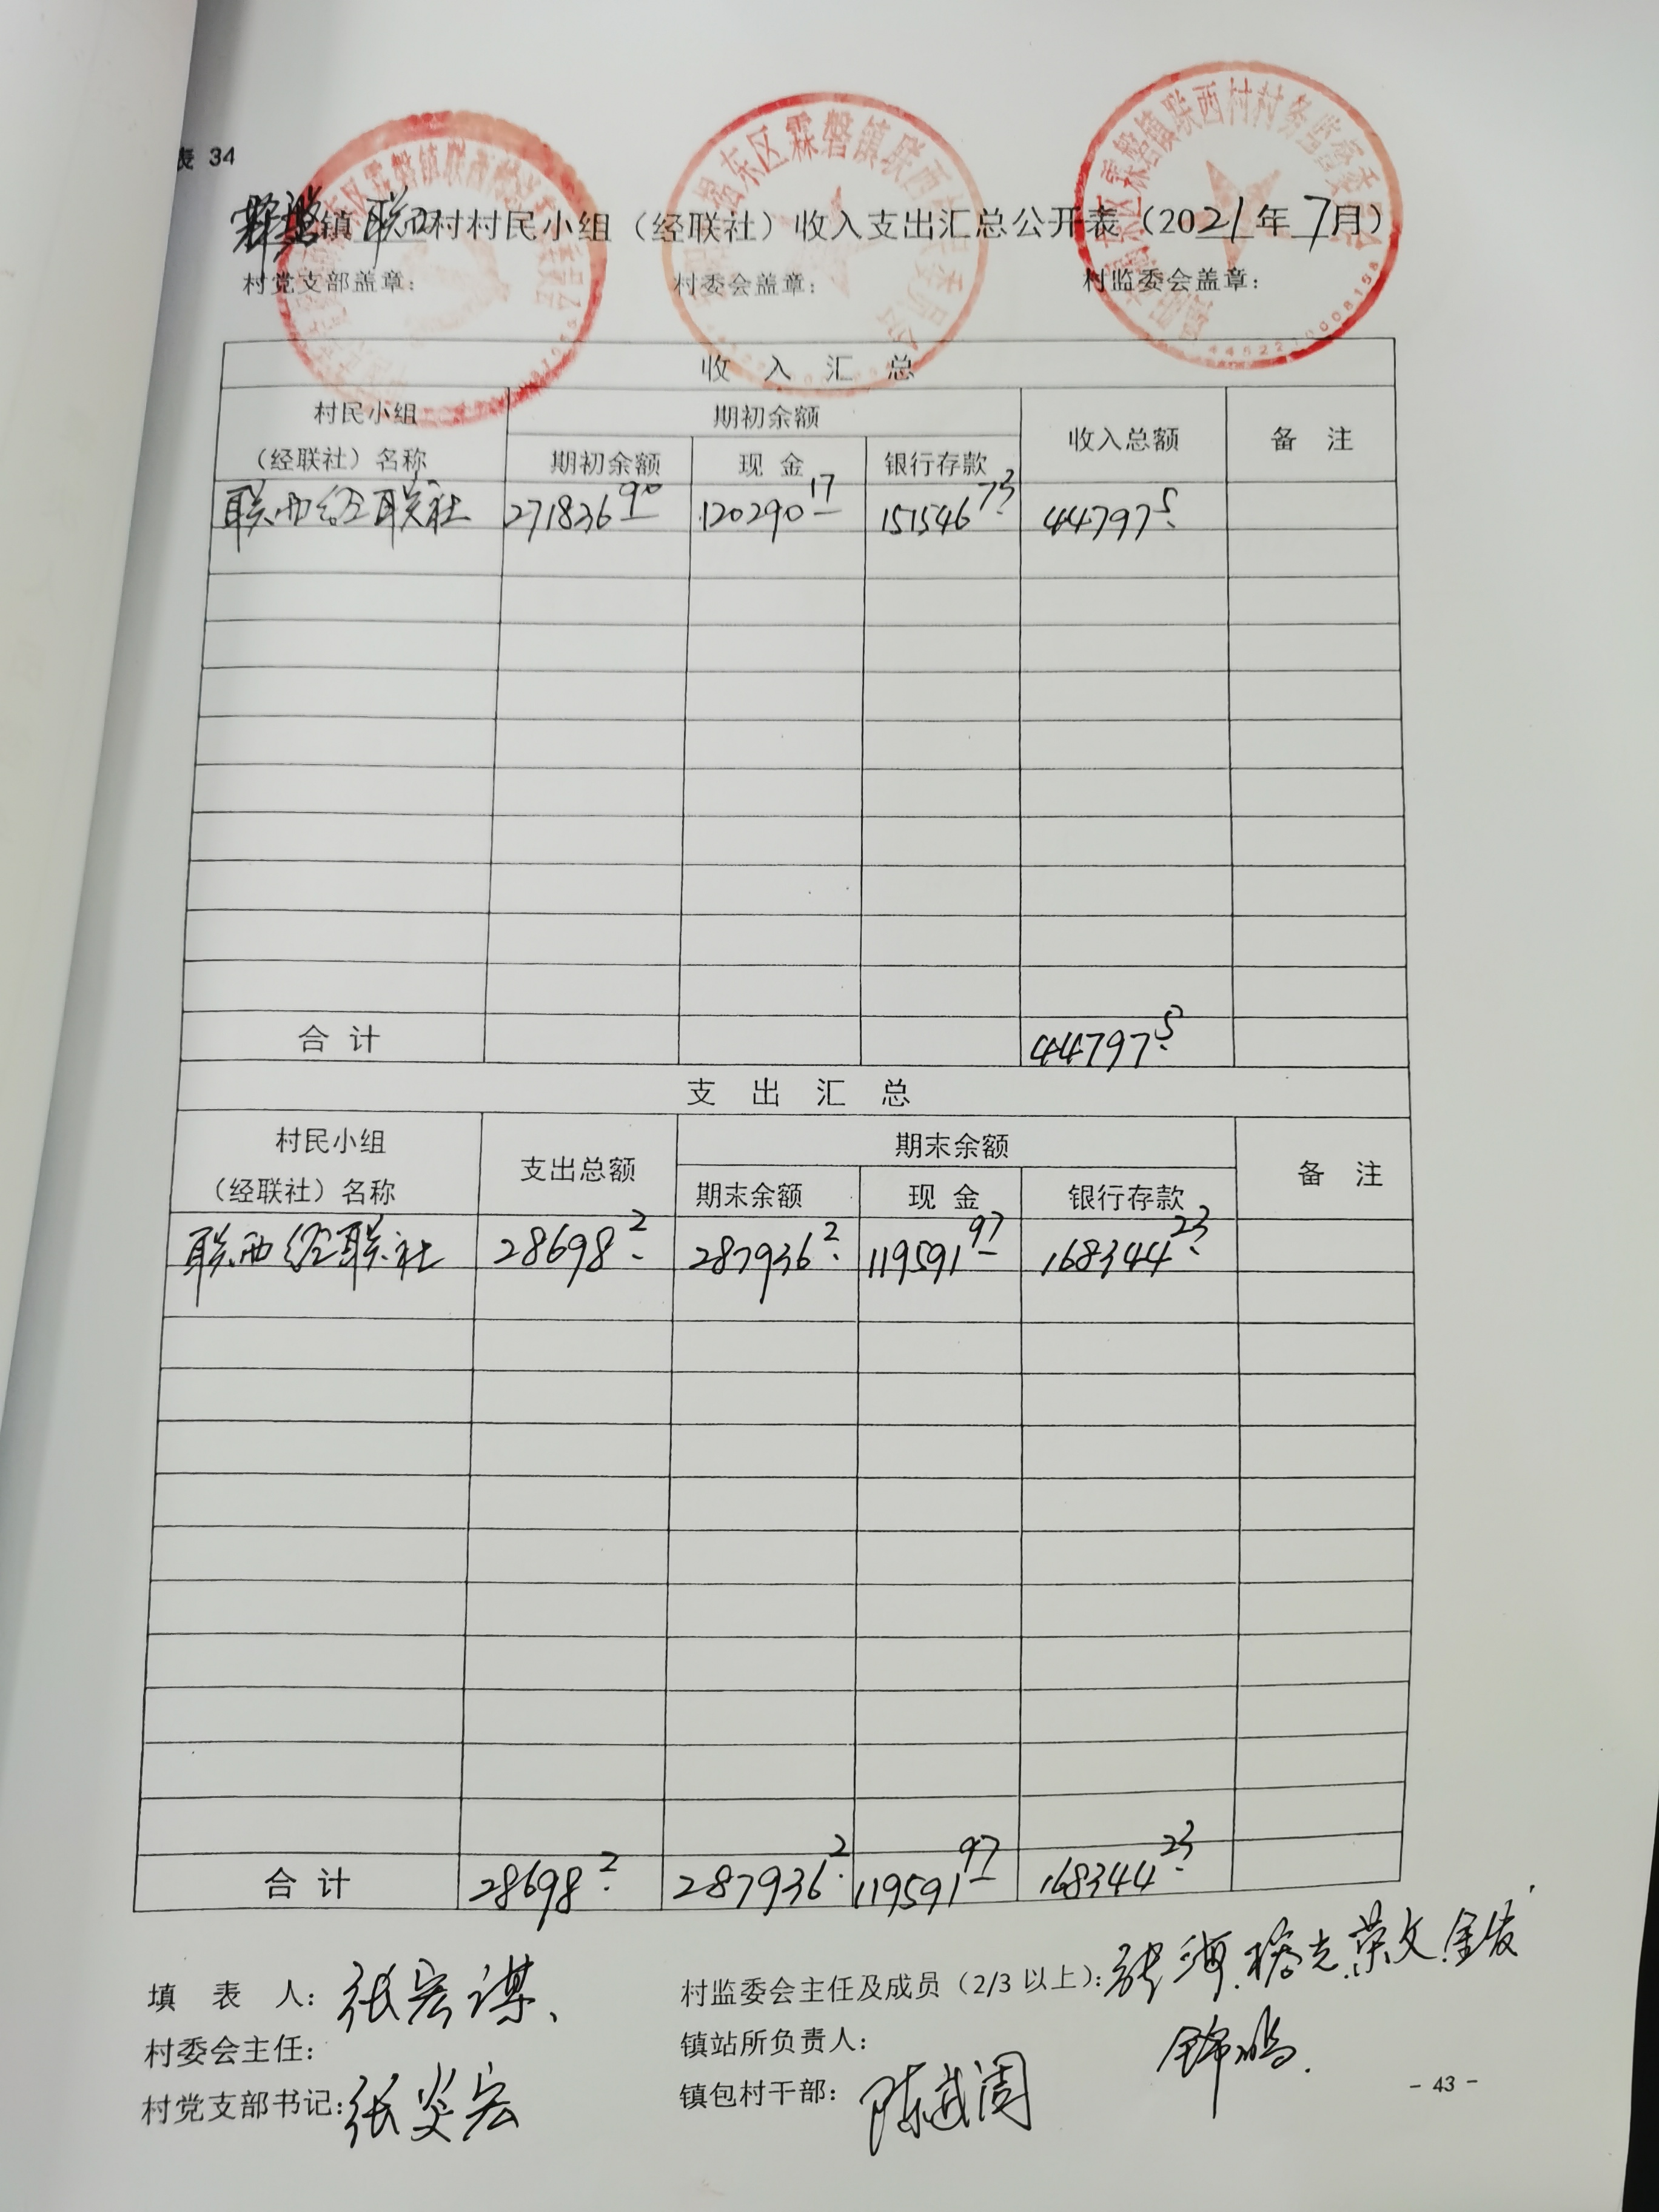 表 34
霖磐镇 联西村村民小组（经联社）收入支出汇总公开表（2021年 7月）
村党支部盖章： 村委会盖章： 村监委会盖章：
东区霖磐镇联西
东区霖磐镇联西
区霖磐镇联西村村务监督委
收 入 汇 总
村民小组（经联社）名称 期初余额 收入总额 备 注
期初余额 现 金 银行存款
联西经联社 271836.90 120290.17 151546.73 44797.5
合 计 44797.5
支 出 汇 总
村民小组（经联社）名称 支出总额 期末余额 备 注
期末余额 现 金 银行存款
联西经联社 28698.2 287936.2 119591.97 168344.23
合 计 28698.2 287936.2 119591.97 168344.23
填 表 人：张宏谋 村监委会主任及成员（2/3 以上）：荣文 金发
村委会主任： 镇站所负责人：
村党支部书记：张炎宏 镇包村干部：
- 43 -